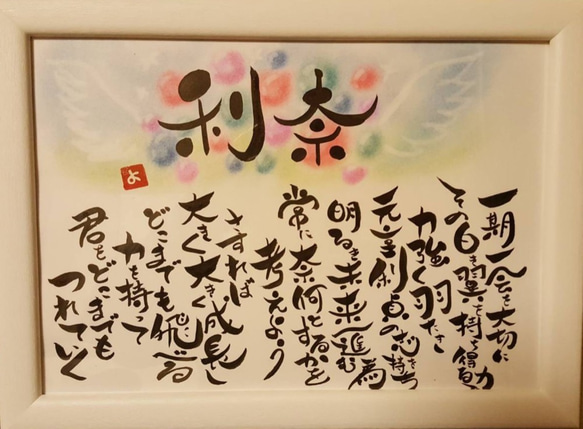 利奈
よ
一期一会を大切に
その白き翼を持ち得る力
力強く羽ばたき
元亨利貞の志を持ち
明るき未来へ進む為
常に奈何とするかを
考えよう
さすれば
大きく大きく成長し
どこまでも飛べる
力を持って
君をどこまでも
つれていく